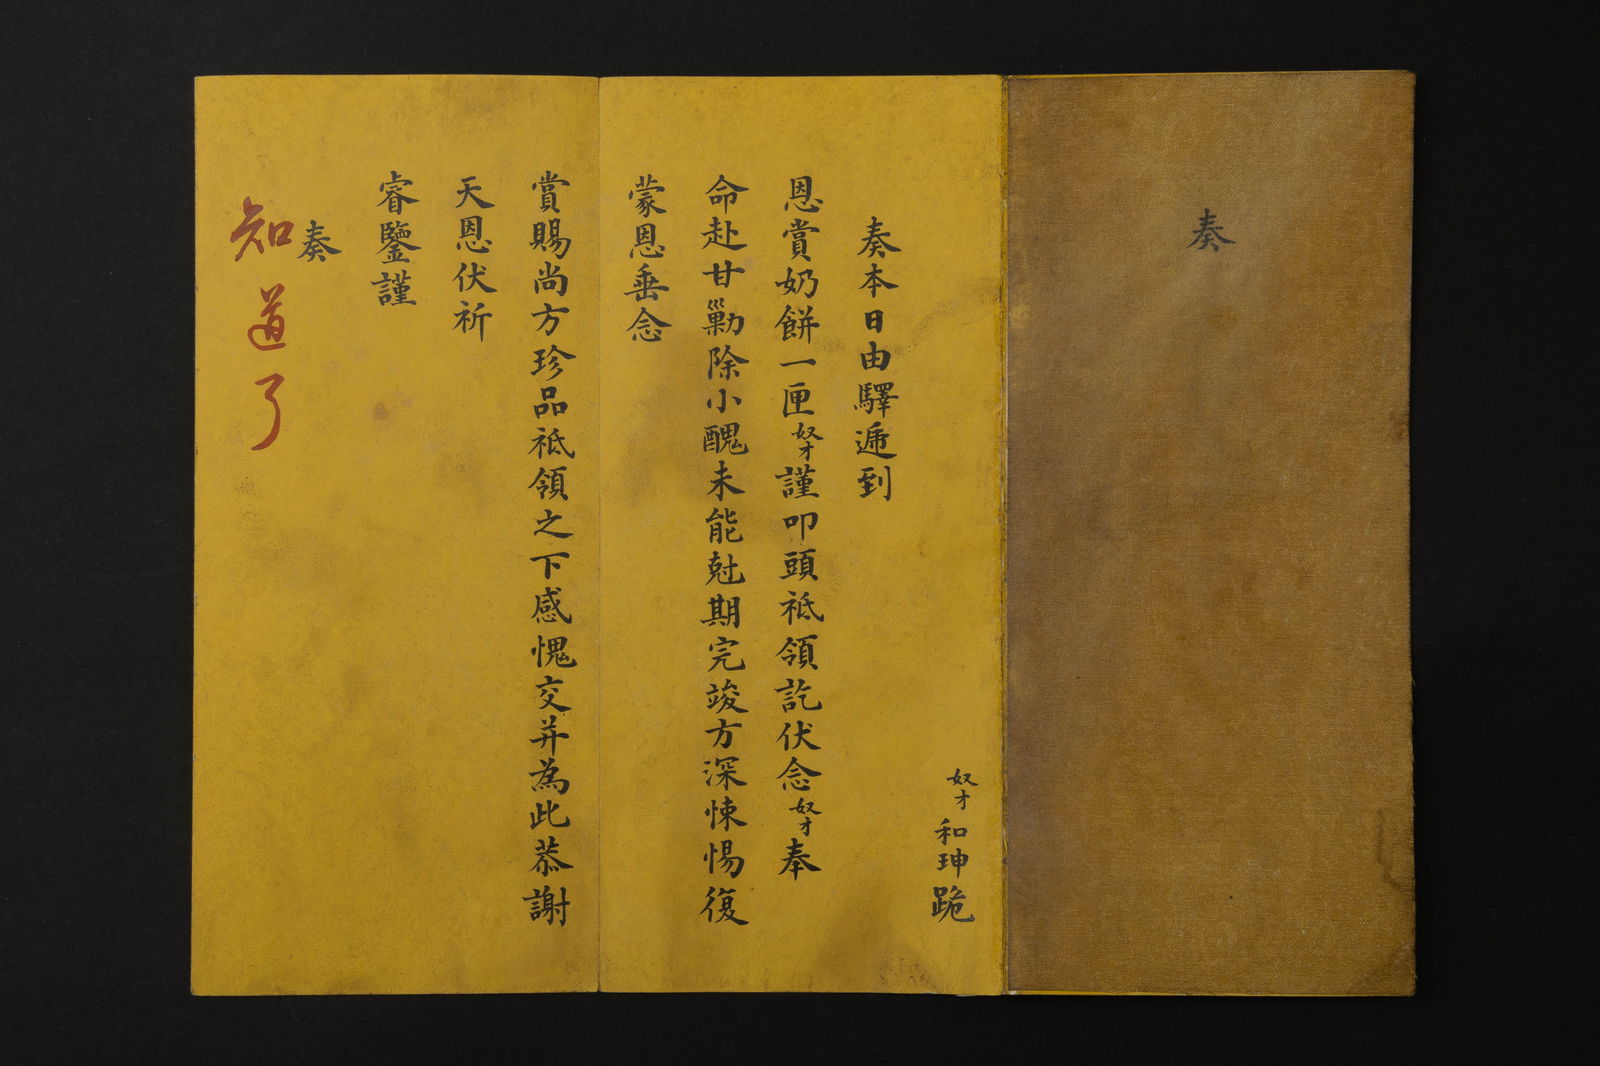 奏
奴才和珅跪
奏本日由驛遞到
恩賞奶餅一匣奴才謹叩頭祗領訖伏念奴才奉
命赴甘勦除小醜未能尅期完竣方深悚惕復
蒙恩垂念
賞賜尚方珍品祗領之下感愧交并為此恭謝
天恩伏祈
睿鑒謹
奏
知道了